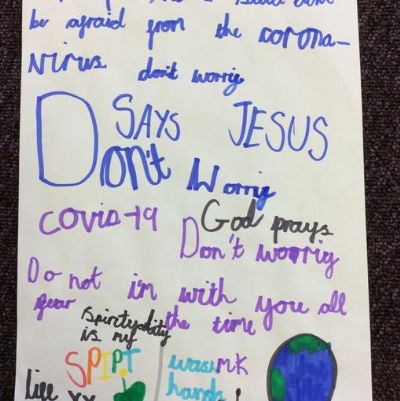 dont
be afraid from the corona-
virus dont worry
SAYS JESUS
Don't Worry
covid-19 God prays
Don't worry
Do not i'm with you all
fear the time
is my
SPIPT
hands
xx